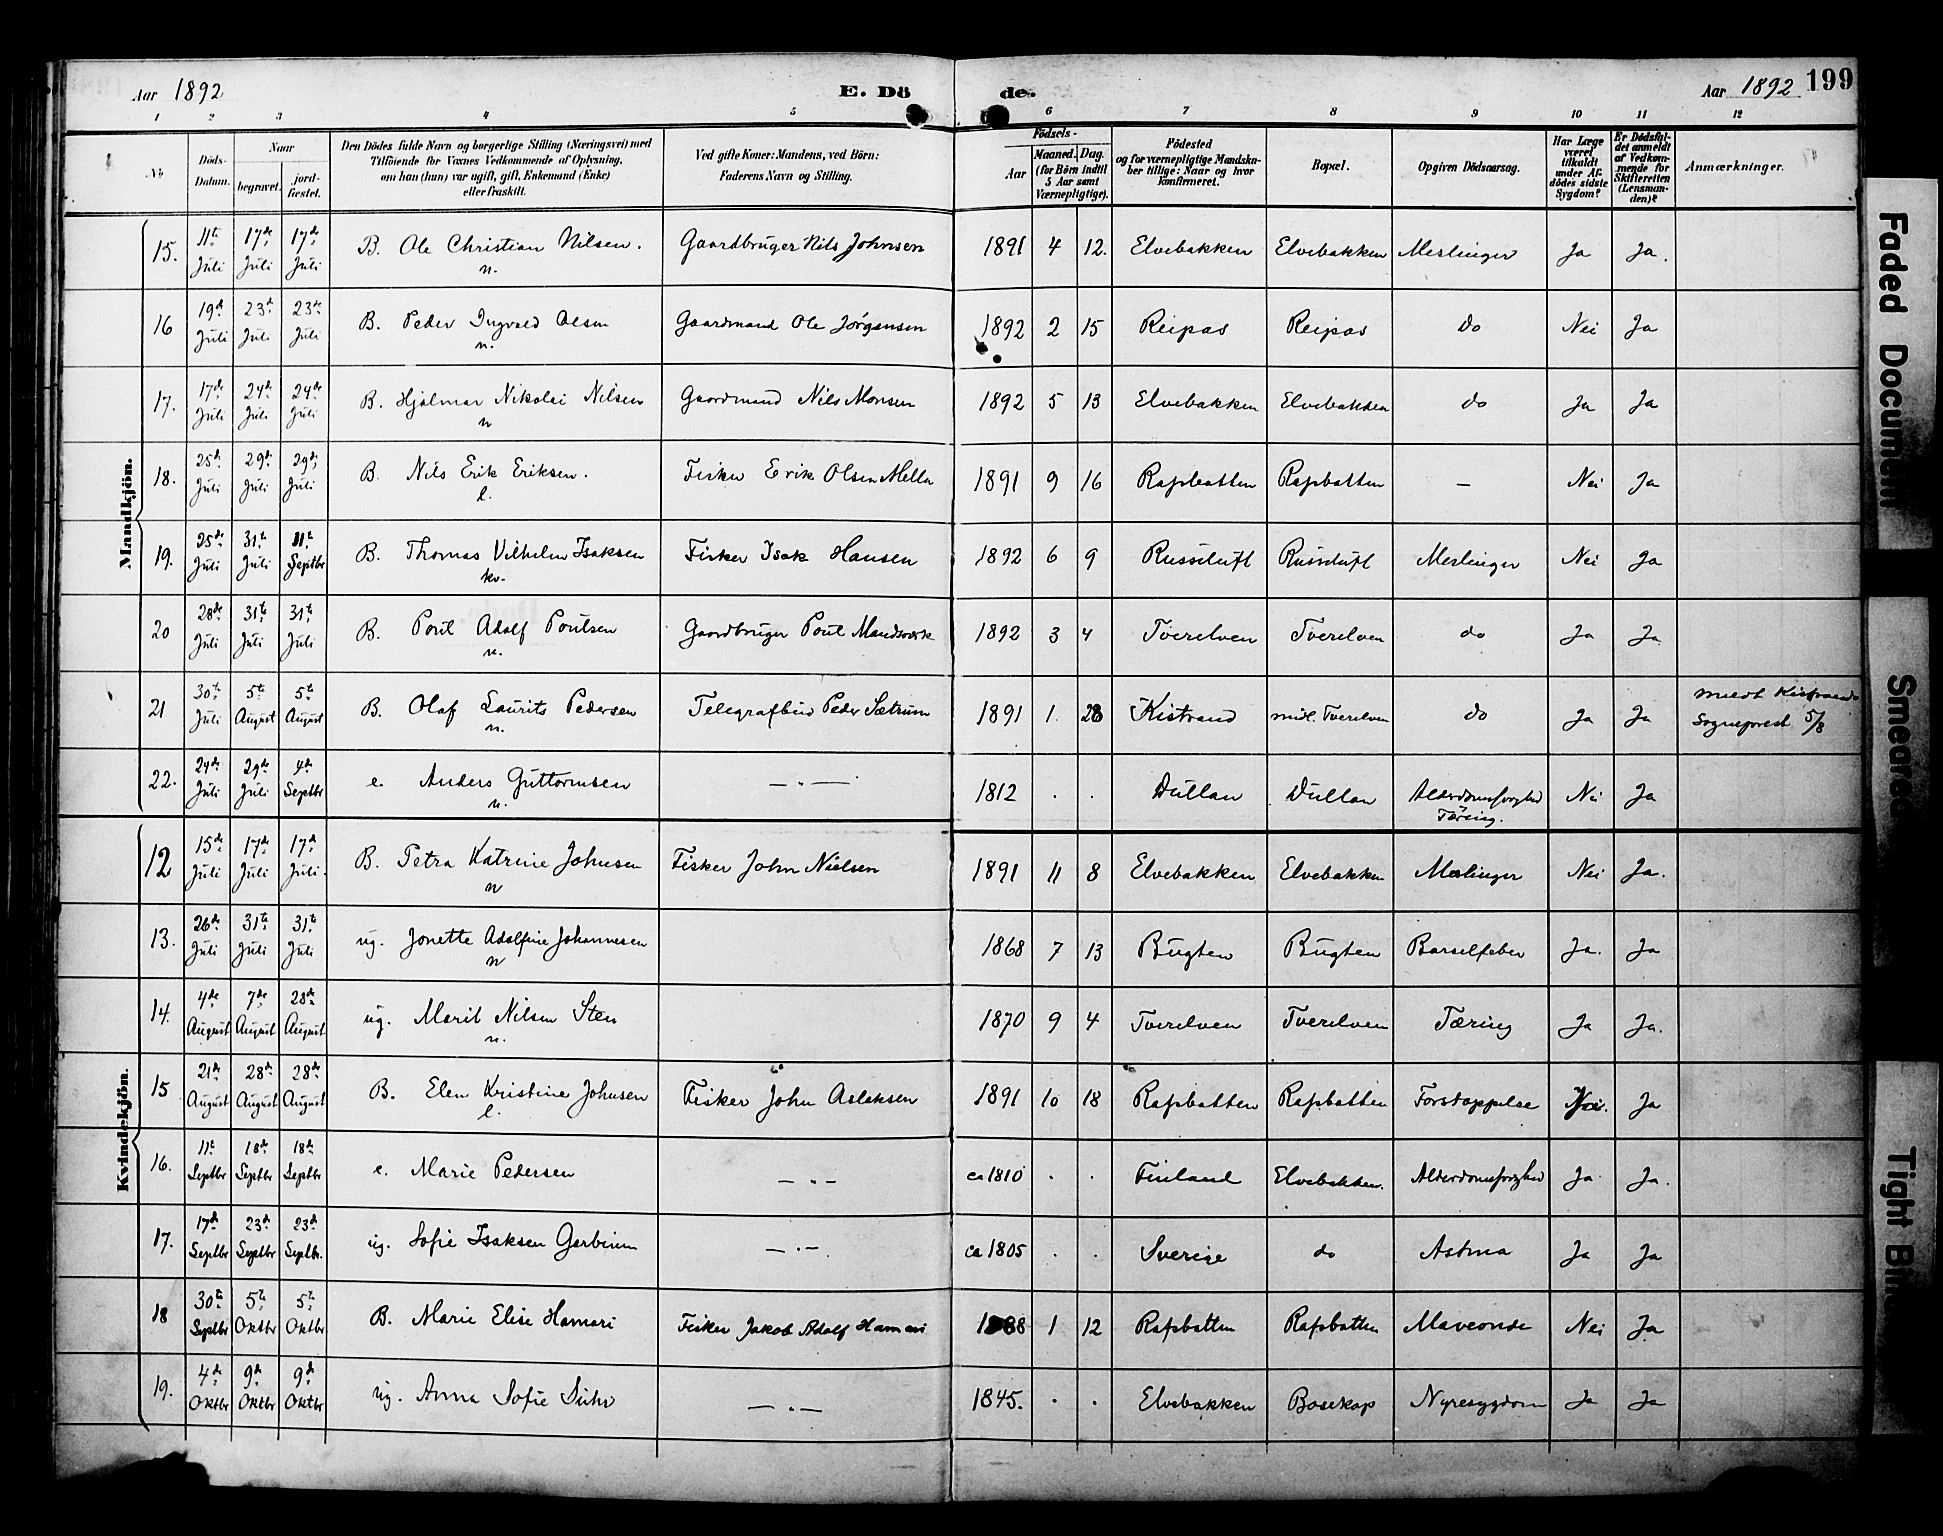 Aar 1892 E. Dö de. Aar 1892 199
1 2 3 4 5 6 7 8 9 10 11 12
No Döds-Datum. Naar begravet. jordfæstet. Den Dödes fulde Navn og borgerlige Stilling (Næringsvei) med Tilföiende for Voxnes Vedkommende af Oplysning, om han (hun) var ugift, gift, Enkemand (Enke) eller fraskilt. Ved gifte Koner: Mandens, ved Börn: Faderens Navn og Stilling. Födsels- Aar Maaned. Dag. (for Börn indtil 5 Aar samt Værnepligtige). Födested og for værnepligtige Mandskaber tillige: Naar og hvor konfirmeret. Bopæl. Opgiven Dödsaarsag. Har Læge været tilkaldt under Afdödes sidste Sygdom? Er Dödsfaldet anmeldt af Vedkommende for Skifteretten (Lensmanden)? Anmærkninger.
Mandkjön.
15. 11te Juli 17de Juli 17de Juli B. Ole Christian Nilsen. n. Gaardbruger Nils Johnsen 1891 4 12. Elvebakken Elvebakken Meslinger Ja Ja.
16 19de Juli 23de Juli 23de Juli B. Peder Ingvald Olsen n. Gaardmand Ole Jörgensen 1892 2 15 Reipas Reipas do Nei Ja
17. 17de Juli 24de Juli 24de Juli B. Hjalmar Nikolai Nilsen n Gaardmand Nils Monsen 1892 5 13 Elvebakken Elvebakken do Ja Ja
18. 25de Juli 29de Juli 29de Juli B. Nils Erik Eriksen. l. Fisker Erik Olsen Mella 1891 9 16 Rafsbatten Rafsbatten — Nei Ja
19. 25de Juli 31te Juli 11te Septbr B. Thomas Vilhelm Isaksen kv. Fisker Isak Hansen 1892 6 9 Russeluft Russeluft Meslinger Nei Ja
20 28de Juli 31te Juli 31te Juli B. Poul Adolf Poulsen n. Gaardbruger Poul 1892 3 4 Tverelven Tverelven do Ja Ja
21 30te Juli 5te August 5te August B. Olaf Laurits Pedersen n. Telegrafbud Peder Sætrum 1891 1. 28 Kistrand midl. Tverelven do Ja Ja meldt Kistrands Sogneprest 5/8
22. 24de Juli 29de Juli 4de Septbr e. Anders Guttormsen n. — „ — 1812 . . Dullan Dullan Alderdomssvaghed Tæring. Nei Ja
Kvindekjön.
12 15de Juli 17de Juli 17de Juli. B. Petra Katrine Johnsen n Fisker John Nielsen 1891 11 8 Elvebakken Elvebakken Meslinger Nei Ja.
13. 26de Juli 31te Juli 31te Juli ug. Jonette Adolfine Johannesen n 1868 7 13 Bugten Bugten Barselfeber Ja. Ja
14. 4de August 7de August 28de August ug. Marit Nilsen Sten n. 1870 9 4 Tverelven Tverelven Tæring Ja Ja.
15 21de August 28de August 28de August B. Elen Kristine Johnsen l. Fisker John Aslaksen 1891 10 18 Rafsbatten Rafsbatten Forstoppelse Nei. Ja
16. 11te Septbr 18de Septbr 18de Septbr e. Marie Pedersen — „ — ca 1810 . . Finland Elvebakken. Alderdomssvaghed Ja Ja.
17. 17de Septbr 23de Septbr 23de Septbr. ug. Sofie Isaksen — „ —. ca 1805 . . Sverige do Astma Ja Ja
18 30te Septbr 5te Oktbr 5te Oktbr B. Marie Elise Hamari Fisker Jakob Adolf Hamari 1888 1 12 Rafsbatten Rafsbatten Maveonde Nei Ja
19. 4de Oktbr 9de Oktbr 9de Oktbr ug. Anna Sofie — „ — 1845. . . Elvebakken Bosekop Nyresygdom Ja Ja
Faded Document
Smeared
Tight Bin